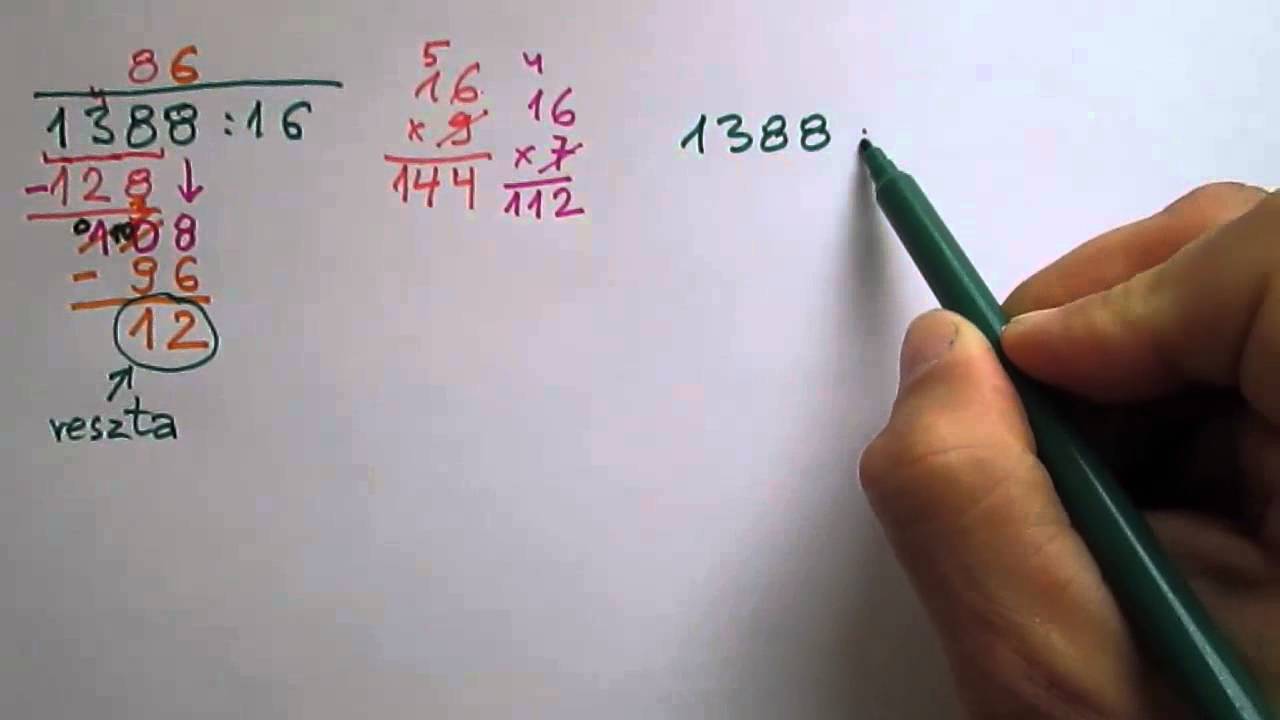 86
1388:16
-128
108
- 96
12
reszta
5
16
× 9
144
4
16
× 7
112
1388 :